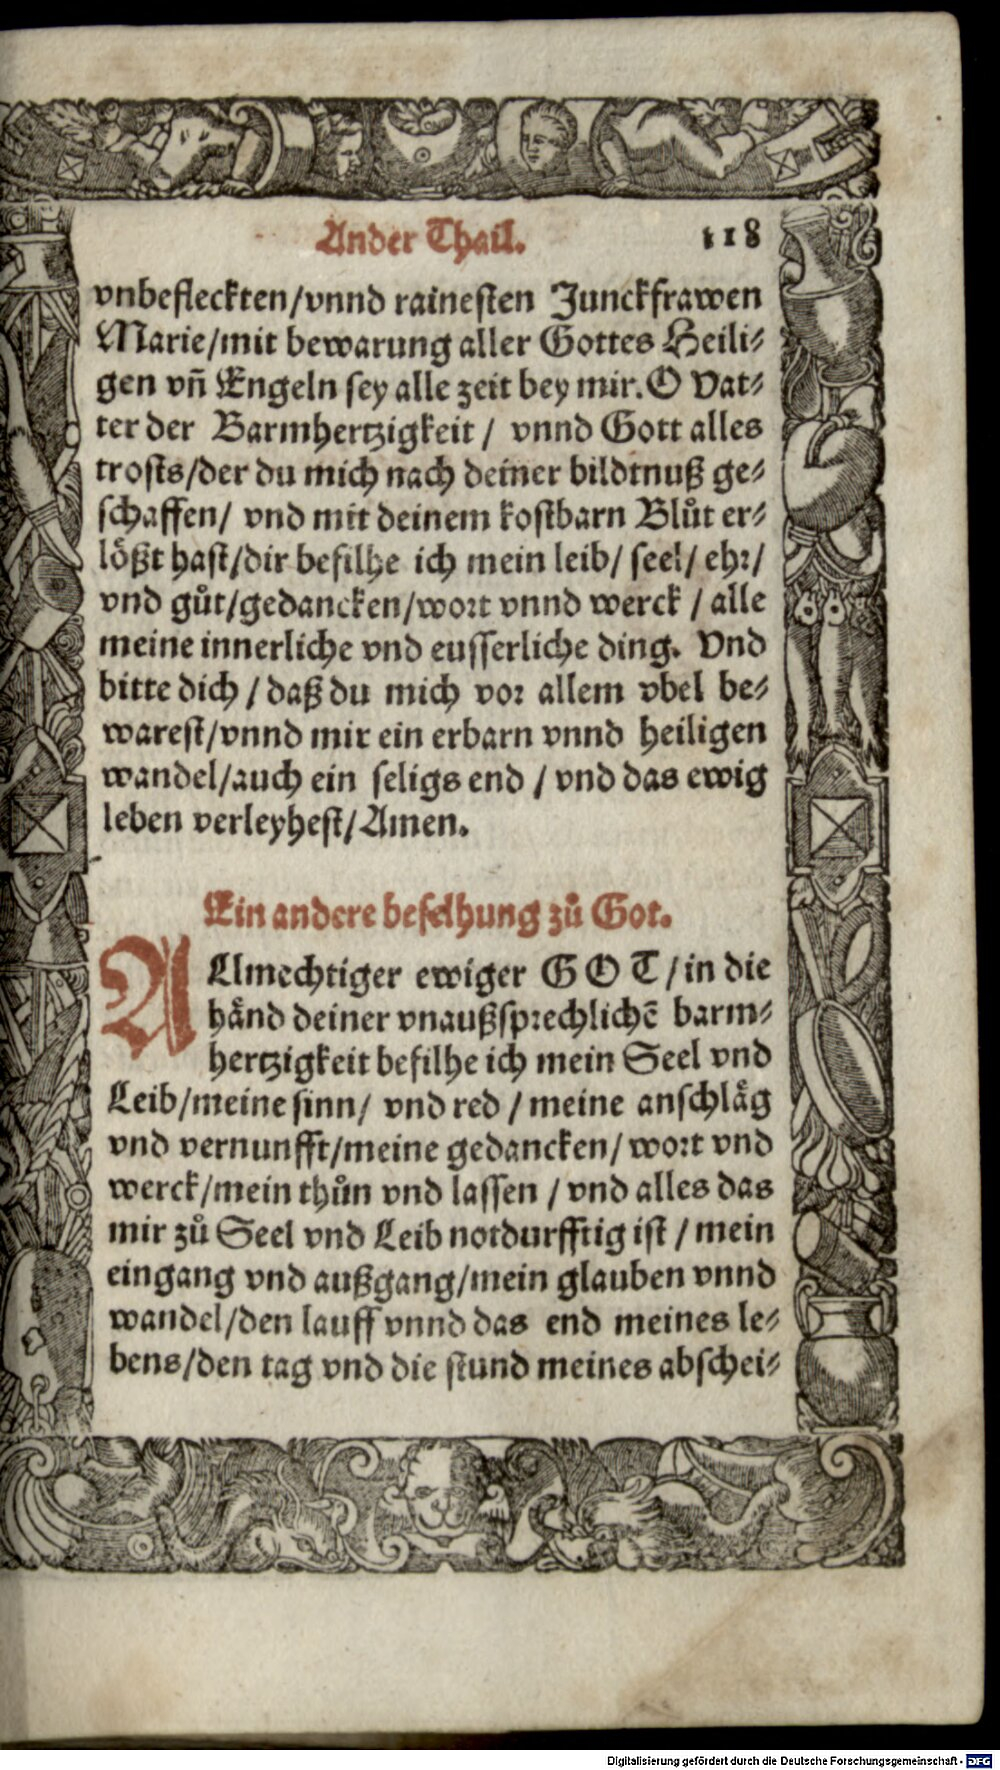 Ander Thail. 118
vnbefleckten/vnnd rainesten Junckfrawen
Marie/mit bewarung aller Gottes Heili⸗
gen vñ Engeln sey alle zeit bey mir. O Vat⸗
ter der Barmhertzigkeit / vnnd Gott alles
trosts/der du mich nach deiner bildtnuß ge⸗
schaffen/ vnd mit deinem kostbarn Blůt er⸗
lößt hast/dir befilhe ich mein leib/ seel/ ehr/
vnd gůt/gedancken/wort vnnd werck / alle
meine innerliche vnd eusserliche ding. Vnd
bitte dich / daß du mich vor allem vbel be⸗
warest/vnnd mir ein erbarn vnnd heiligen
wandel/auch ein seligs end / vnd das ewig
leben verleyhest/Amen.
Ein andere befelhung zů Got.
ALmechtiger ewiger GOT/in die
hånd deiner vnaußsprechlichē barm⸗
hertzigkeit befilhe ich mein Seel vnd
Leib/meine sinn/ vnd red / meine anschlåg
vnd vernunfft/meine gedancken/ wort vnd
werck/mein thůn vnd lassen / vnd alles das
mir zů Seel vnd Leib notdurfftig ist / mein
eingang vnd außgang/mein glauben vnnd
wandel/den lauff vnnd das end meines le⸗
bens/den tag vnd die stund meines abschei⸗
Digitalisierung gefördert durch die Deutsche Forschungsgemeinschaft - DFG